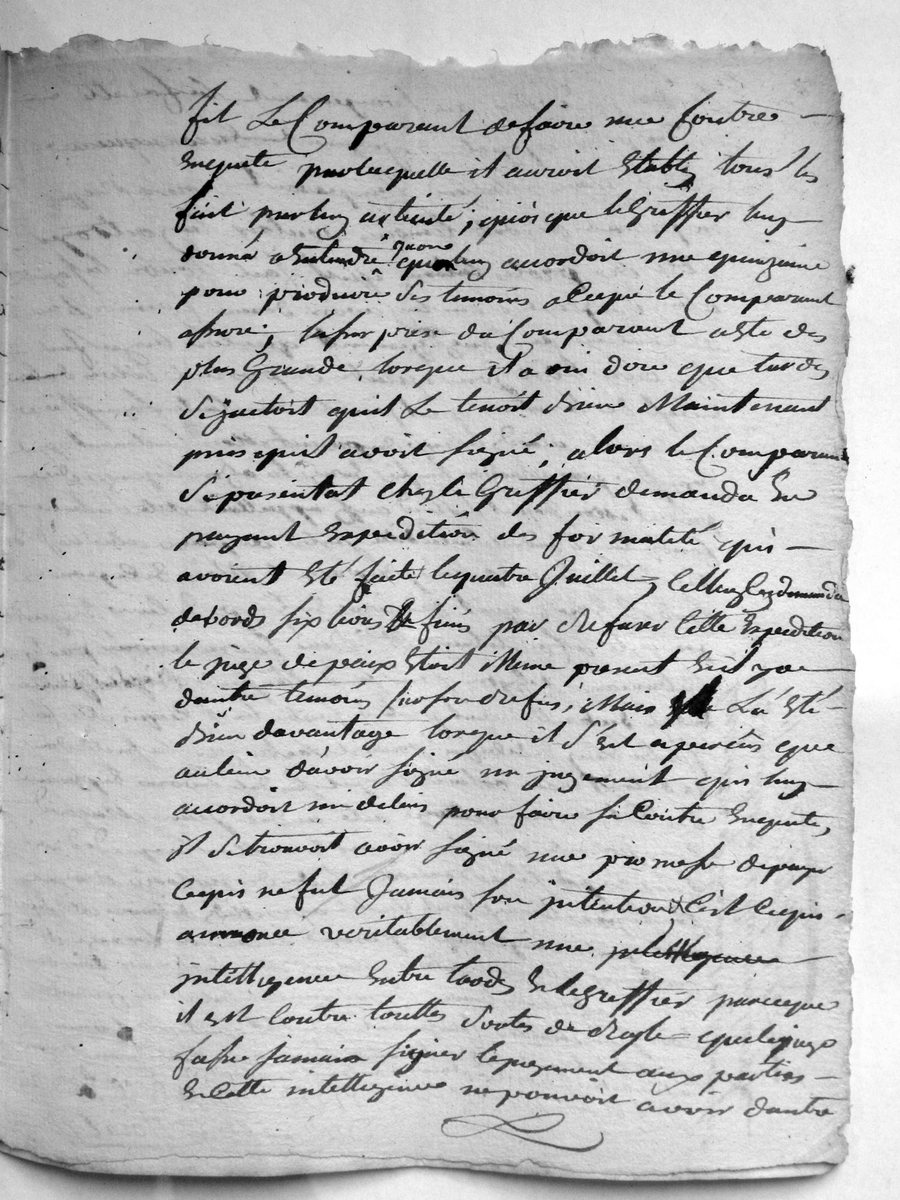 fit Le Comparant de faire une Contre
Enquete par laquelle il auroit Etabli tous les
fait par luy articulé ; quois que le Greffier luy
donna a Entendre qu'on luy accordoit une quinzaine
pour produire Ses temoins a Ceque le Comparant
assure ; la surprise du Comparant a Eté des
plus Grande, lorsque il a oui dire que tardes
Se jactoit qu'il Le tenoit bien Maintenant
puis qu'il avoit signé ; alors le Comparant
Se presentat Chez le Greffier demanda En
payant Expedition des formalité qui
avoient Eté faite le quatre Juillet, Celluy Cy demanda
dabords six livres & finis par Refuser Cette Expedition
le juge de paix Etoit Meme present Et il y a
dautre temoins Sur son Refus, Mais La Eté
bien davantage lorsque il S'est aperçus que
au lieu d'avoir signé un jugement qui luy
accordoit un delais pour faire sa Contre Enquete,
il Se trouvoit avoir signé une promesse de payer
Cequi ne fut Jamais son intention, C'est Cequi
annonce veritablement une
intelligence Entre tardes Et le greffier parceque
il est Contre touttes Sortes de Regle que le juge
fasse Jamais signer le jugement aux parties
Et Cette intelligence ne pouvoit avoir dautre